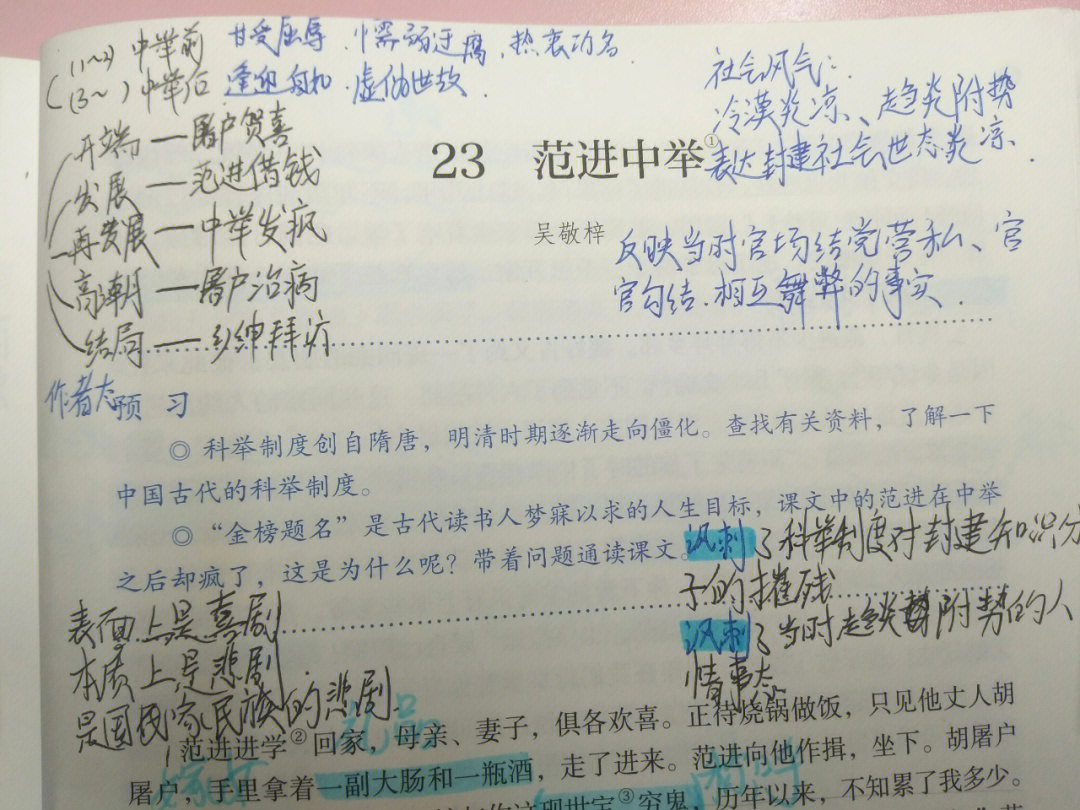 (1~2) 中举前 甘受屈辱、懦弱迂腐,热衷功名
(3~ ) 中举后 逢迎自扣 虚伪世故.
社会风气:
冷漠炎凉、趋炎附势
表达封建社会世态炎凉.
开端—屠户贺喜
发展—范进借钱
再发展—中举发疯
高潮—屠户治病
结局—乡绅拜访
23 范进中举①
吴敬梓
反映当时官场结党营私、官
官勾结、相互舞弊的事实.
作者态
预 习
◎ 科举制度创自隋唐,明清时期逐渐走向僵化。查找有关资料,了解一下
中国古代的科举制度。
◎ “金榜题名”是古代读书人梦寐以求的人生目标,课文中的范进在中举
之后却疯了,这是为什么呢?带着问题通读课文。
讽刺了科举制度对封建知识分
子的摧残
讽刺了当时趋炎附势的人
情事态
表面上是喜剧
本质上是悲剧
是国家民族的悲剧.
礼品
范进进学②回家,母亲、妻子,俱各欢喜。正待烧锅做饭,只见他丈人胡
屠户,手里拿着一副大肠和一瓶酒,走了进来。范进向他作揖,坐下。胡屠户
现世宝③穷鬼,历年以来,不知累了我多少。